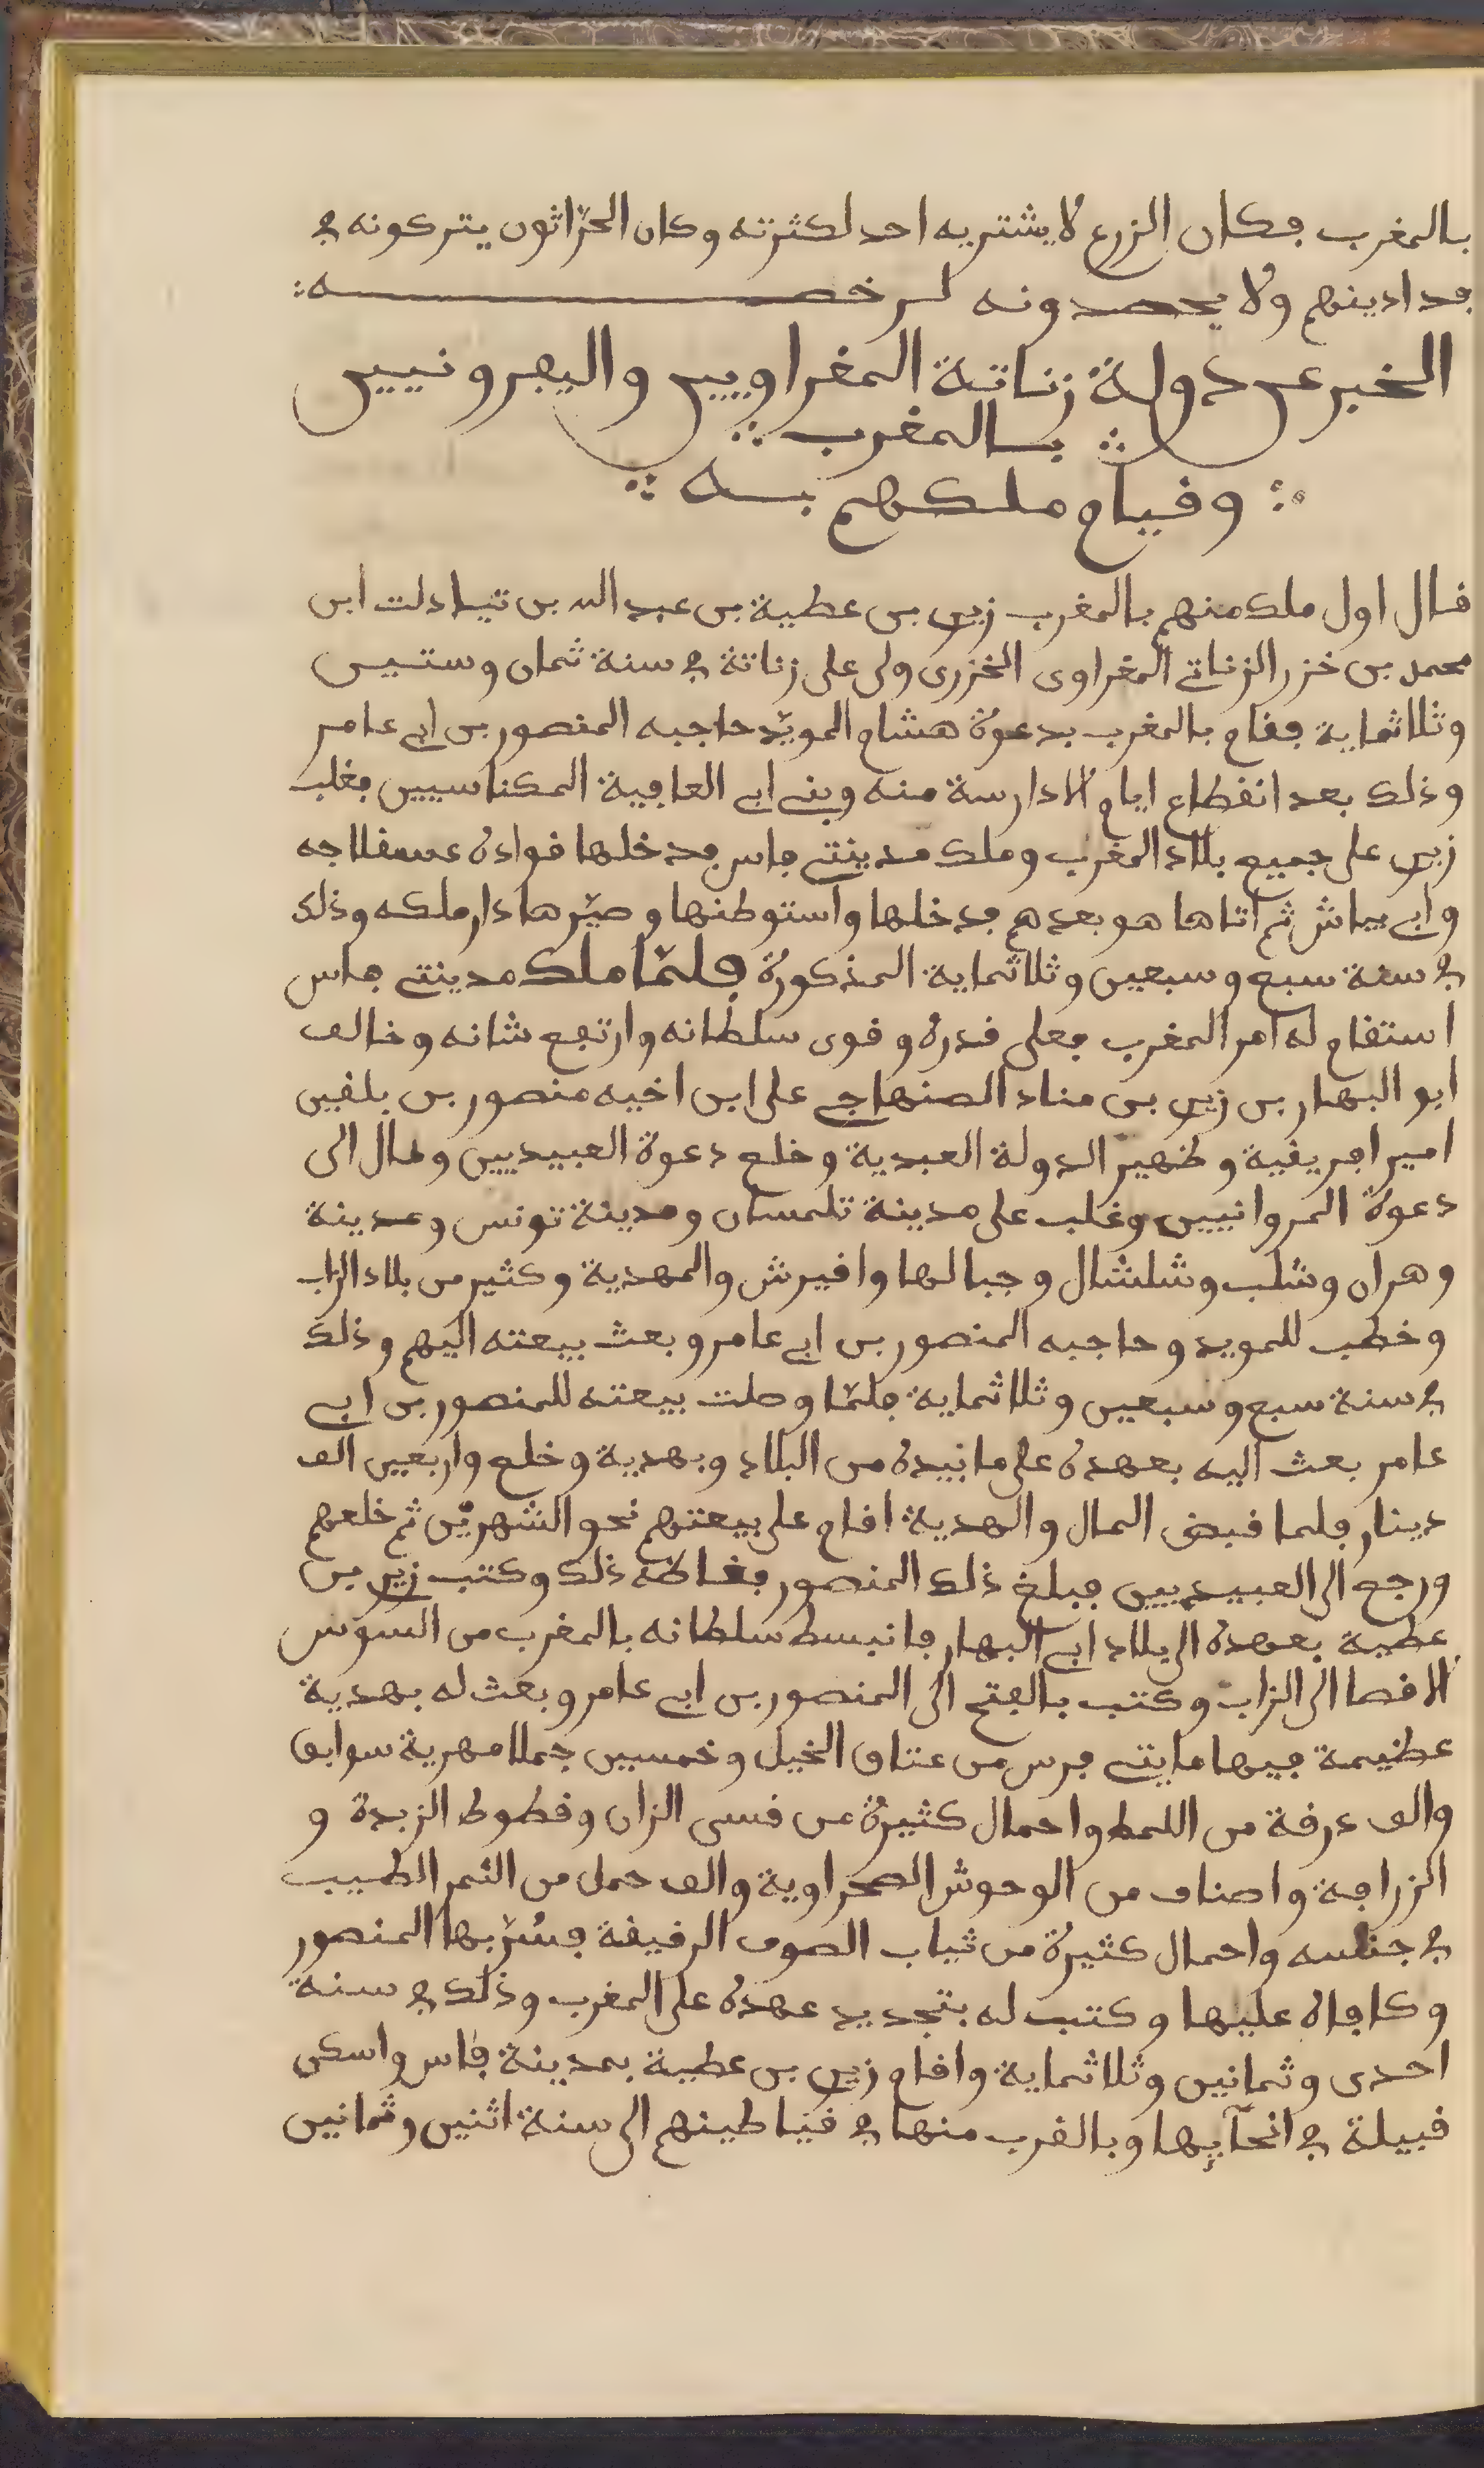 بالمغرب فكان الزرع لا يشتريه احد لكثرته وكان الحرّاثون يتركونه في
فدادينهم ولا يحصدونه لرخصه
الخبر عن دولة زناتة المغراويين واليفرونيين
بالمغرب
وقيام ملكهم به
قال اول ملك منهم بالمغرب زيري بن عطية بن عبد الله بن تبادلت ابن
محمد بن خزر الزناتي المغراوى الخزرى ولى على زناتة في سنة ثمان وستين
وثلاثماية فقام بالمغرب بدعوة هشام المويّد حاجبه المنصور بن ابي عامر
وذلك بعد انقطاع ايام الادارسة منه وبني ابي العافية المكناسيين فغلب
زيري على جميع بلاد المغرب وملك مدينتي فاس فدخلها قواده عسفلاجه
وابي بياش ثم اتاها هو بعدهم فدخلها واستوطنها وصيّرها دار ملكه وذلك
في سنة سبع وسبعين وثلاثماية المذكورة فلمّا ملك مدينتي فاس
استقام له امر المغرب فعلى قدره وقوى سلطانه وارتفع شانه وخالف
ابو البهار بن زيري بن مناد الصنهاجي على ابن اخيه منصور بن بلقين
امير افريقية وظهير الدولة العبدية وخلع دعوة العبيديين ومال الى
دعوة المروانيين وغلب على مدينة تلمسان ومدينة تونس ومدينة
وهران وشلب وشلشال وجبالها وافيرش والمهدية وكثير من بلاد الزاب
وخطب للمويد وحاجبه المنصور بن ابي عامر وبعث ببيعته اليهم وذلك
في سنة سبع وسبعين وثلاثماية فلمّا وصلت بيعته للمنصور بن ابي
عامر بعث اليه بعهده على ما بيده من البلاد وبهدية وخلع واربعين الف
دينار فلما قبض المال والهدية اقام على بيعتهم نحو الشهرين ثم خلعهم
ورجع الى العبيديين فبلغ ذلك المنصور فغاظه ذلك وكتب زيري بن
عطية بعهده الى بلاد ابي البهار فانبسط سلطانه بالمغرب من السوس
الاقصا الى الزاب وكتب بالفتح الى المنصور بن ابي عامر وبعث له بهدية
عظيمة فيها مايتي فرس من عتاق الخيل وخمسين جملا مهرية سوابق
والف درقة من اللمط واحمال كثيرة من قسى الزان وقطوط الزبدة و
الزرافة واصناف من الوحوش الصحراوية والف حمل من التمر الطيب
في جنسه واحمال كثيرة من ثياب الصوف الرفيقة فسُرّ بها المنصور
وكافاه عليها وكتب له بتجديد عهده على المغرب وذلك في سنة
احدى وثمانين وثلاثماية واقام زيري بن عطية بمدينة فاس واسكن
قبيلة في انحآيها وبالقرب منها في قياطينهم الى سنة اثنين وثمانين